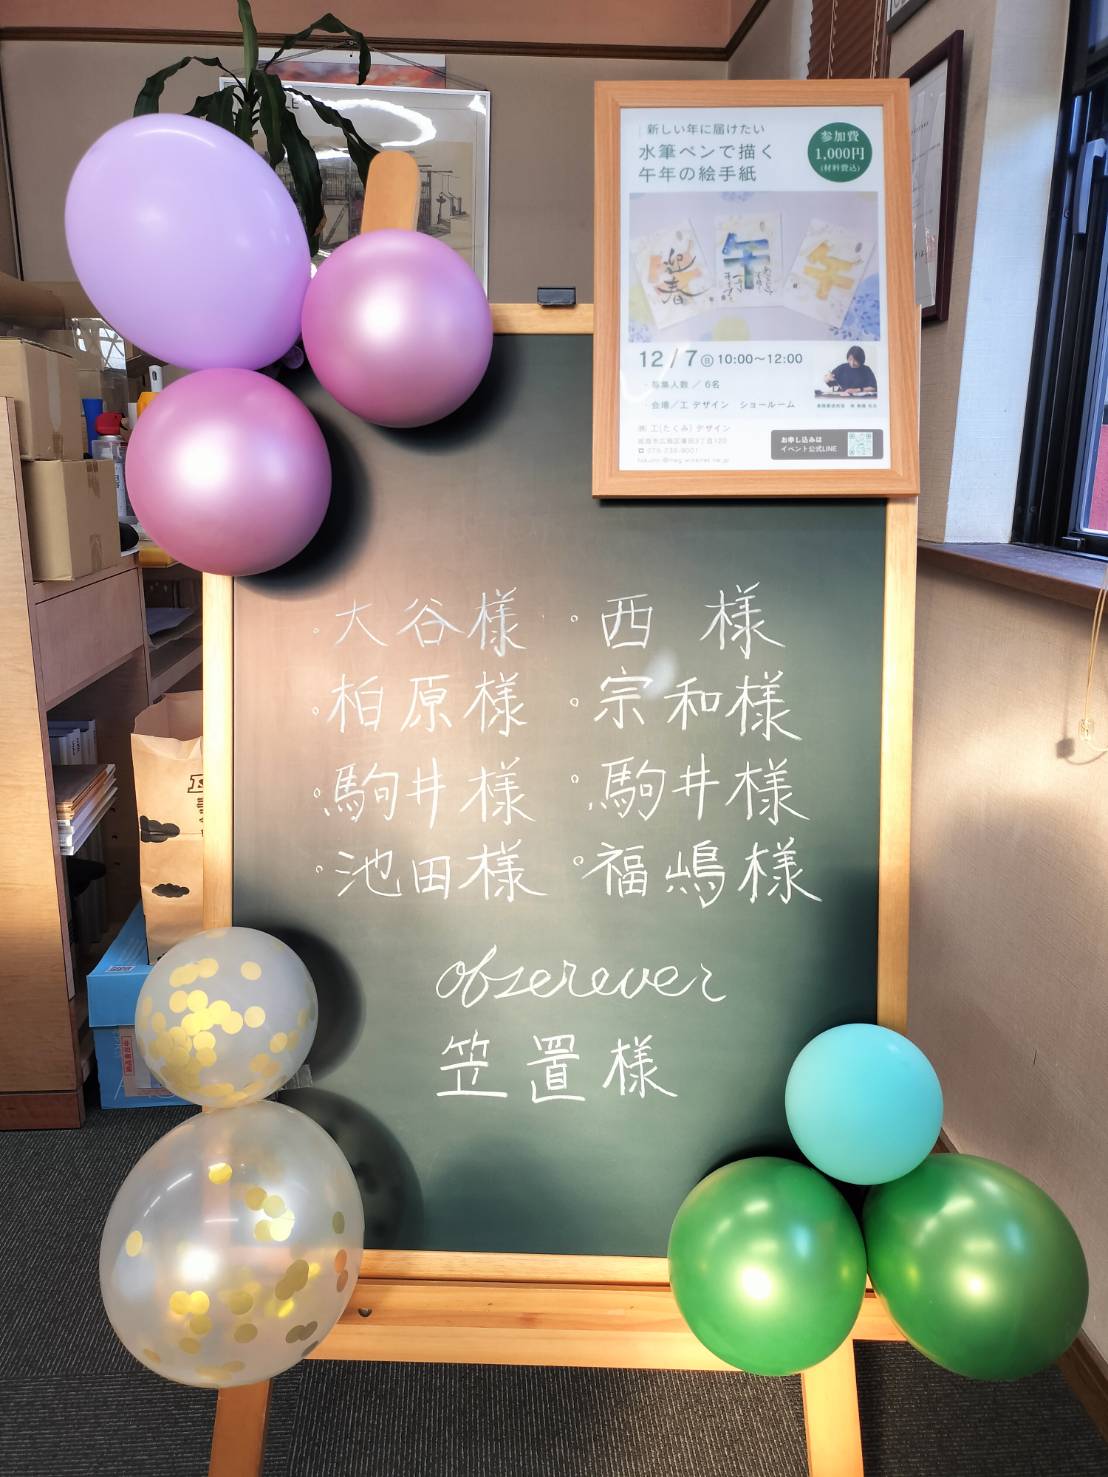 新しい年に届けたい
水筆ペンで描く
午年の絵手紙
参加費
1,000円
(材料費込)
迎春
午
午
12/7㊐10:00〜12:00
募集人数／6名
会場／工 デザイン ショールーム
㈱ 工(たくみ)デザイン
お申し込みは
イベント公式LINE
大谷様
西 様
柏原様
宗和様
駒井様
駒井様
池田様
福嶋様
obzerever
笠置様